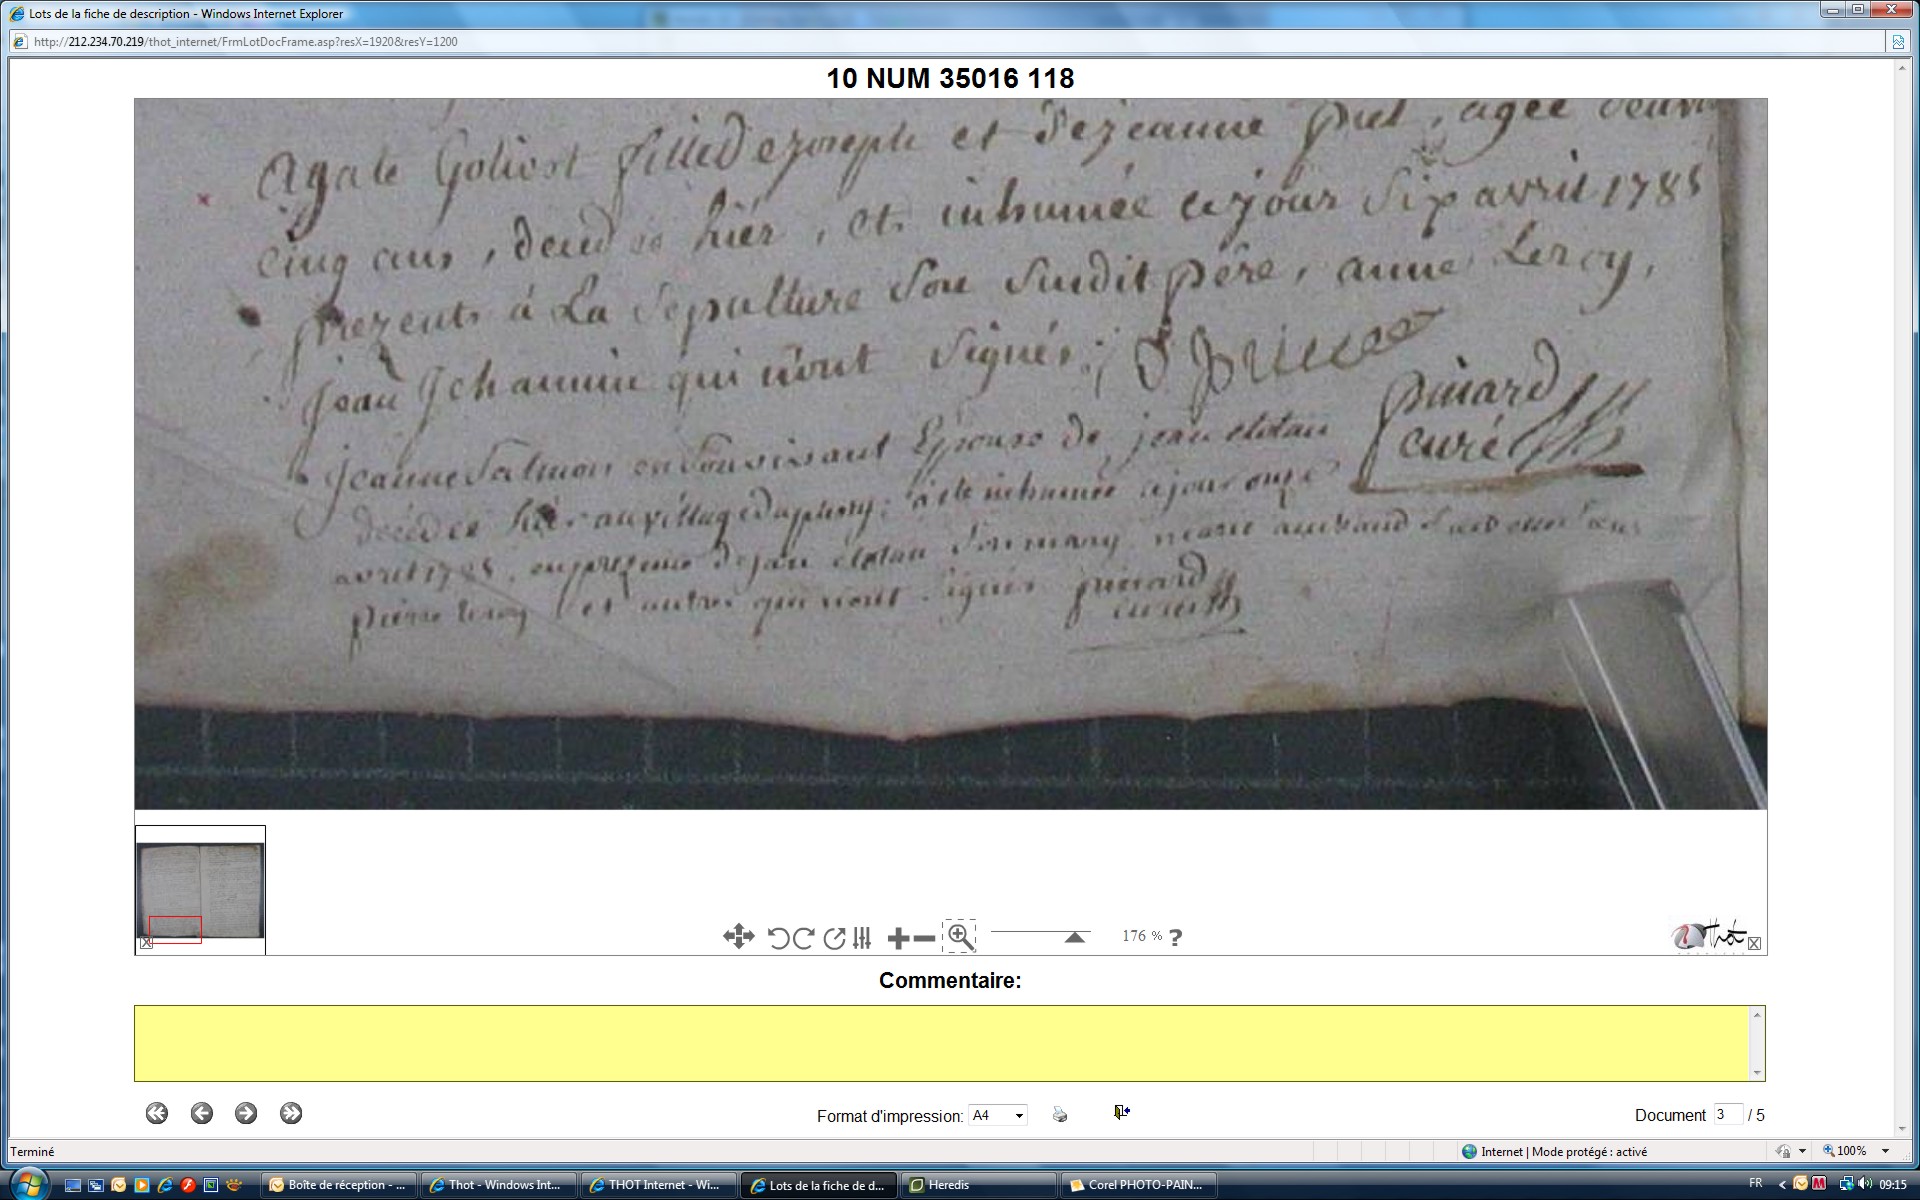 Lots de la fiche de description - Windows Internet Explorer
http://212.234.70.219/thot_internet/FrmLotDocFrame.asp?resX=1920&resY=1200
10 NUM 35016 118
agate Goliest fille de joseph et de jeanne piel, agée denvi
cinq ans, decedee hier, et inhumée ce jour six avril 1785
prezents à La sepulture son susdit père, anne Leroy,
jean Jehannin qui n'ont signés;
pinard
curé
jeanne Salmon en son vivant Epouse de jean
décédée hier au village ; a eté inhumée ce jour onze
avril 1785, en presence de jean son mary, marie
pierre leroy et autres qui n'ont signés pinard
curé
176 % ?
Thot
Commentaire:
Format d'impression: A4
Document 3 / 5
Terminé
Internet | Mode protégé : activé
100%
Boîte de réception - ...
Thot - Windows Int...
THOT Internet - Wi...
Lots de la fiche de d...
Heredis
Corel PHOTO-PAIN...
FR
09:15